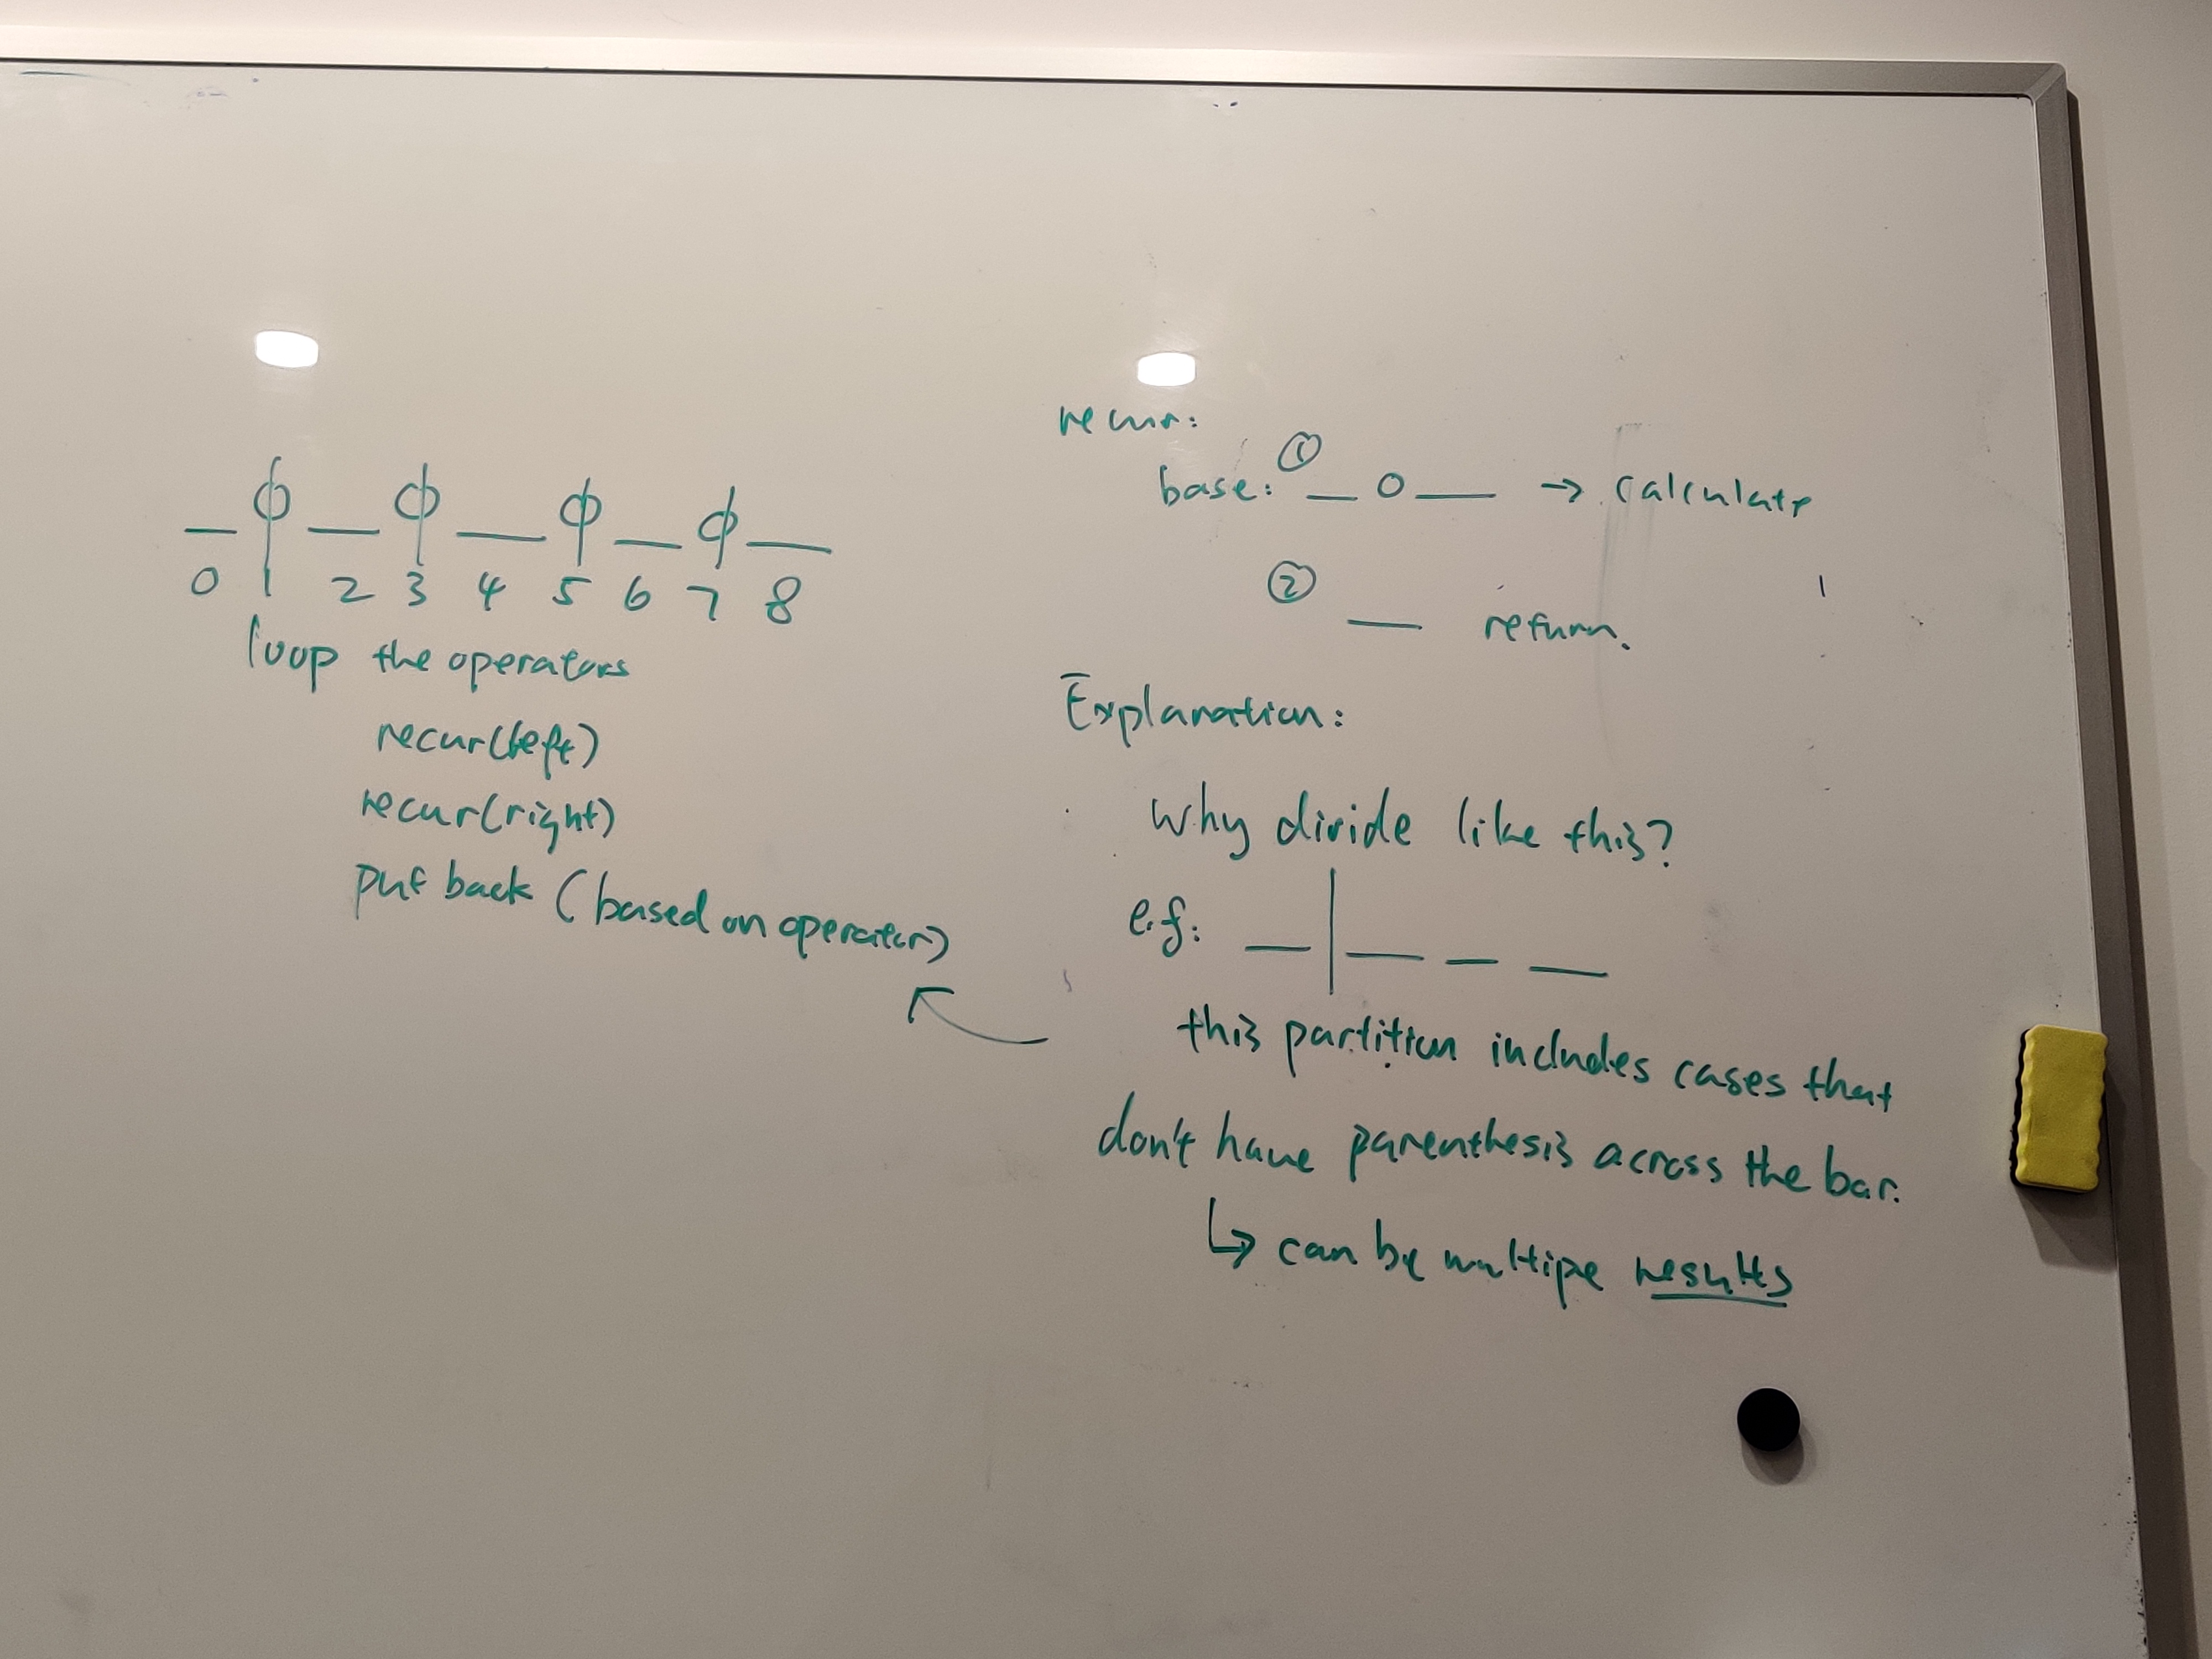 0 1 2 3 4 5 6 7 8
loop the operators
recur(left)
recur(right)
put back (based on operator)
recur:
base: ① _ o _ → calculate
② _ return.
Explanation:
why divide like this?
e.g: _ | _ _ _
this partition includes cases that
don't have parenthesis across the bar.
↳ can be multiple results